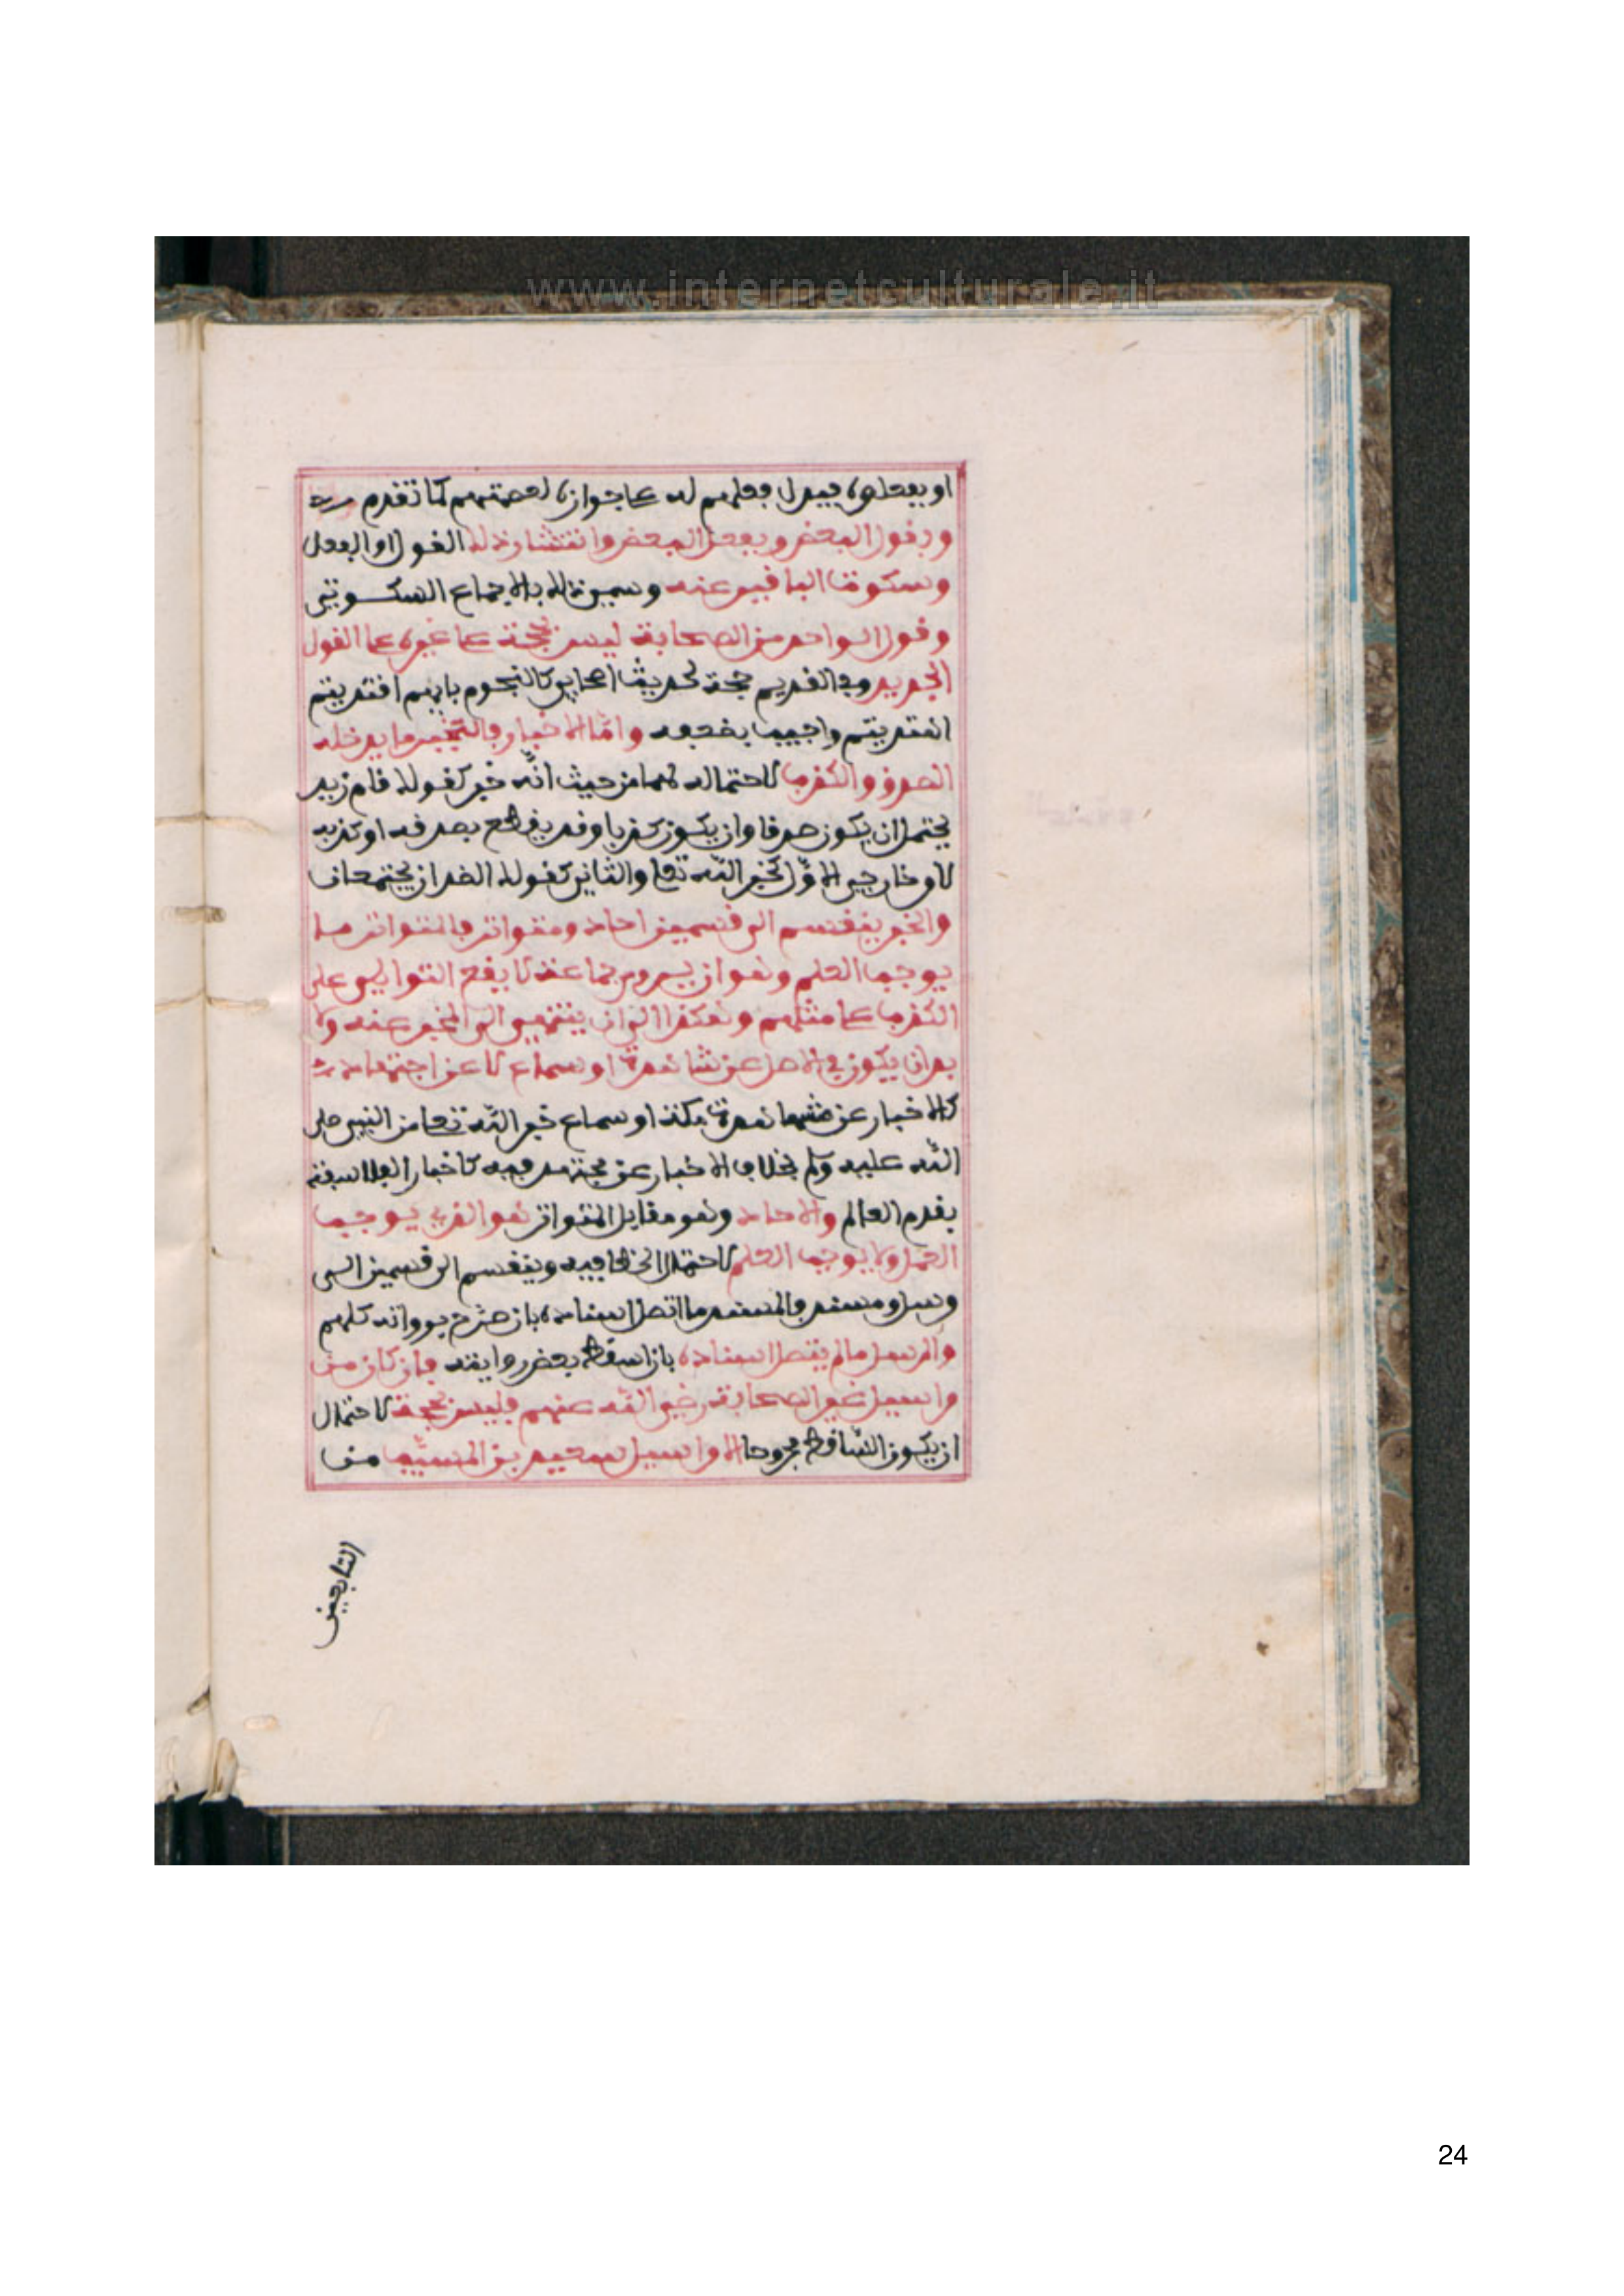 www.internetculturale.it
او بفعلوه فيدل فعلهم له على جوازه لعصمتهم كما تقدم
وبقول البعض وبفعل البعض وانتشار ذلك القول او الفعل
وسكوت الباقين عنه وسمى ذلك بالاجماع السكوتي
وقول الواحد من الصحابة ليس بحجة على غيره على القول
الجديد وفي القديم حجة لحديث اصحابي كالنجوم بايهم اقتديتم
اهتديتم واجيب بضعفه واما الاخبار فالخبر ما يدخله
الصدق والكذب لاحتماله لهما من حيث انه خبر كقولك قام زيد
يحتمل ان يكون صدقا وان يكون كذبا وقد يقطع بصدقه او كذبه
لامر خارجي الاول كخبر الله تعلى والثاني كقولك الضدان يجتمعان
والخبر ينقسم الى قسمين احاد ومتواتر فالمتواتر ما
يوجب العلم وهو ان يروي جماعة لا يقع التواطي على
الكذب على مثلهم وهكذا الى ان ينتهي الى المخبر عنه ولا
بد ان يكون في الاصل عن مشاهدة او سماع لا عن اجتهاد
كالاخبار عن مشاهدة مكة او سماع خبر الله تعلى من النبي صلى
الله عليه وسلم بخلاف الاخبار عن مجتهد فيه كاخبار الفلاسفة
بقدم العالم والاحاد وهو مقابل المتواتر هو الذي يوجب
العمل ولا يوجب العلم لاحتمال الخطا فيه وينقسم الى قسمين الى
مرسل ومسند فالمسند ما اتصل اسناده بان صرح برواته كلهم
والمرسل ما لم يتصل اسناده بان اسقط بعض رواته فان كان من
مراسيل غير الصحابة رضي الله عنهم فليس بحجة لاحتمال
ان يكون الساقط مجروحا الا مراسيل سعيد بن المسيب من
التابعين
24